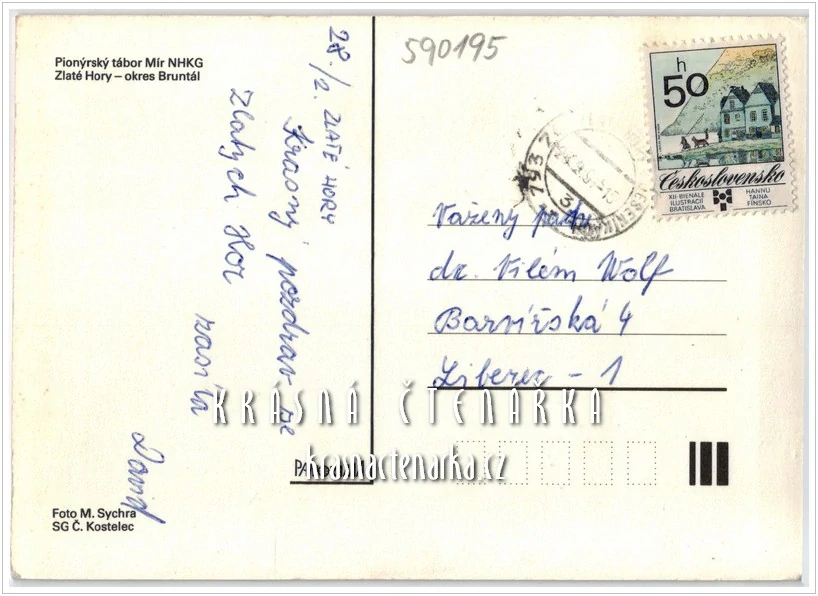 Pionýrský tábor Mír NHKG
Zlaté Hory – okres Bruntál
28./2. ZLATÉ HORY
Krásný pozdrav ze
Zlatých Hor
zasílá
David
Foto M. Sychra
SG Č. Kostelec
590195
h
50
Československo
XII·BIENALE
ILUSTRACÍ
BRATISLAVA
HANNU
TAINA
FÍNSKO
793
Vážený pan
dr. Vilém Wolf
Barvířská 4
Liberec – 1
KRÁSNÁ ČTENÁŘKA
krasnactenarka.cz